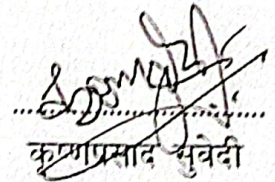 कृष्णप्रसाद सुवेदी